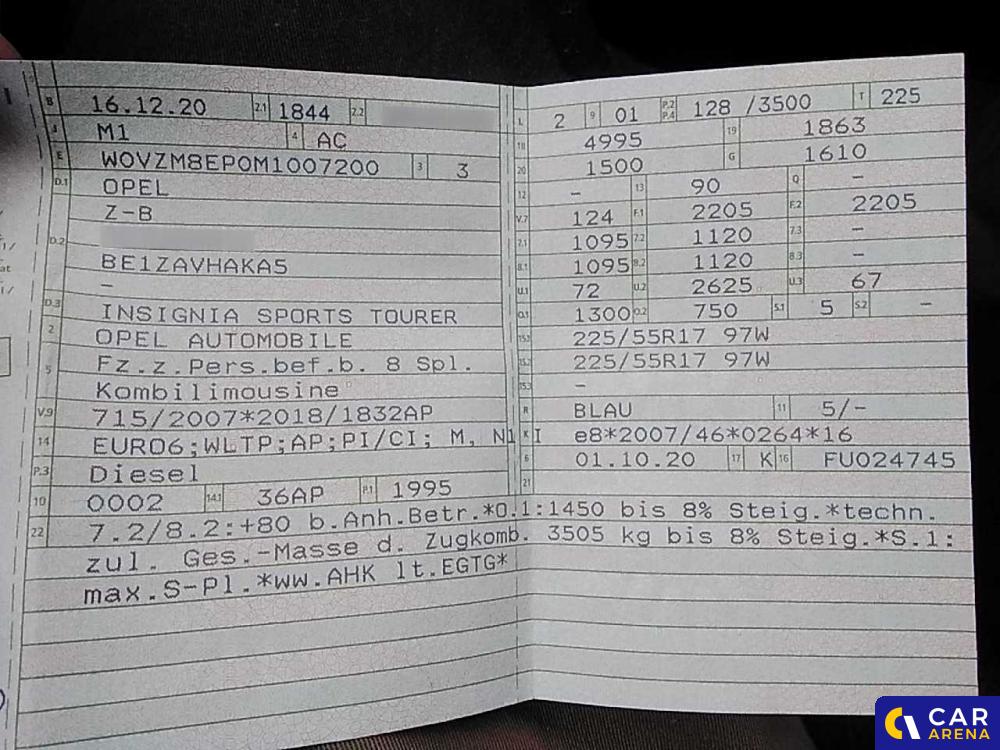 B 16.12.20 2.1 1844 2.2
J M1 4 AC
E W0VZM8EP0M1007200 3 3
D.1 OPEL
Z-B
D.2
BE1ZAVHAKA5
–
D.3 INSIGNIA SPORTS TOURER
2 OPEL AUTOMOBILE
5 Fz.z.Pers.bef.b. 8 Spl.
Kombilimousine
V.9 715/2007*2018/1832AP
14 EURO6;WLTP;AP;PI/CI; M, N1 I
P.3 Diesel
10 0002 14.1 36AP P.1 1995
L 2 9 01 P.2 P.4 128 /3500 T 225
18 4995 19 1863
20 1500 G 1610
12 – 13 90 Q –
V.7 124 F.1 2205 F.2 2205
7.1 1095 7.2 1120 7.3 –
8.1 1095 8.2 1120 8.3 –
U.1 72 U.2 2625 U.3 67
O.1 1300 O.2 750 S.1 5 S.2 –
15.1 225/55R17 97W
15.2 225/55R17 97W
15.3 –
R BLAU 11 5/–
K e8*2007/46*0264*16
6 01.10.20 17 K 16 FU024745
21
22 7.2/8.2:+80 b.Anh.Betr.*O.1:1450 bis 8% Steig.*techn.
zul. Ges.-Masse d. Zugkomb. 3505 kg bis 8% Steig.*S.1:
max.S-Pl.*ww.AHK lt.EGTG*
CAR
ARENA